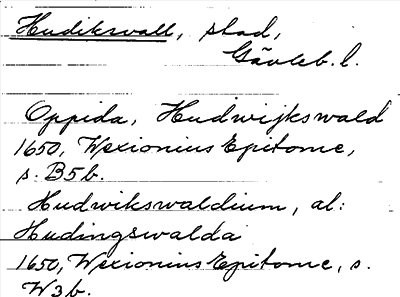 Hudiksvall, stad,
Gävleb. l.
Oppida, Hudwijkswald
1650, Wexionius Epitome,
s. B5b.
Hudwikswaldium, al:
Hudingswalda
1650, Wexionius Epitome, s.
W3b.